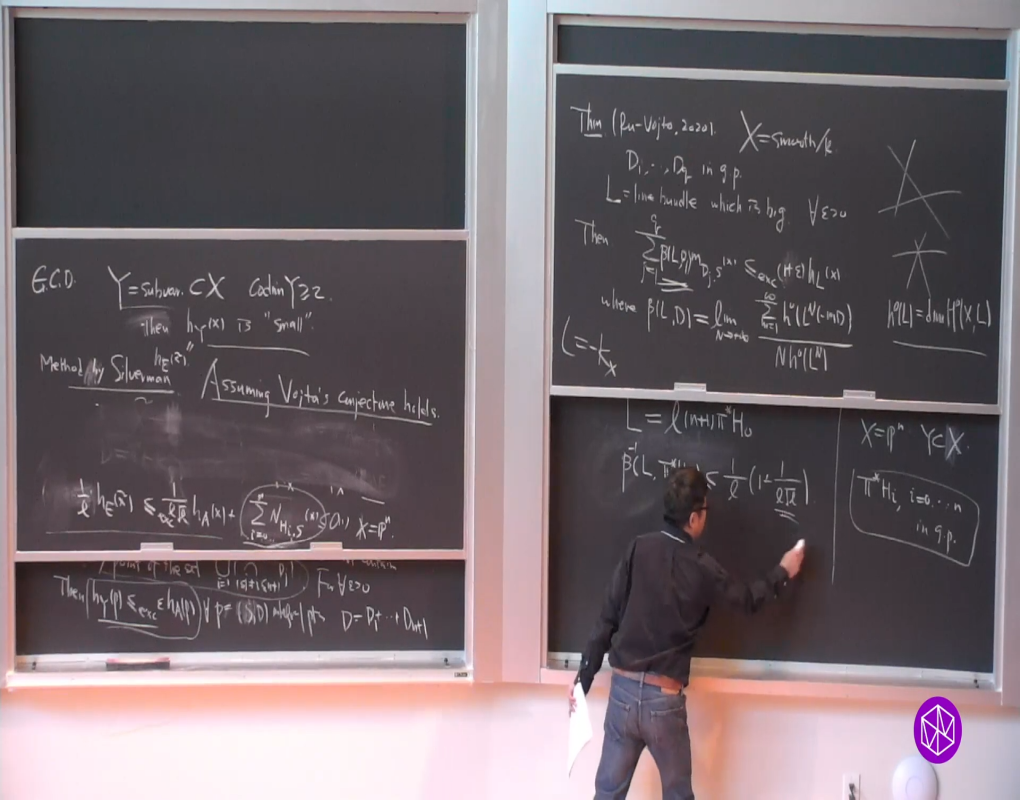 G.C.D. Y = subvar. ⊂ X Codim Y ≥ 2.
Then h_Y(x) is "small".
Method by Silverman h_E(x̃)"
Assuming Vojta's conjecture holds.
1/ℓ h_E(x̃) ≤_exc 1/(ℓ√ℓ) h_A(x) + Σ_{i=0}^{n} N_{H_i,S}(x) + O(1) X = ℙ^n.
point of the set
For ∀ε>0
Then h_Y(P) ≤_exc ε h_A(P) ∀ P = (S,D) integral pts D = D_1 + ⋯ + D_{n+1}
Thm (Ru-Vojta, 2020). X = smooth/k.
D_1, ⋯, D_q in g.p.
L = line bundle which is big ∀ε>0
Then Σ_{j=1}^{q} β(L, D_j) m_{D_j,S}(x) ≤_exc (1+ε) h_L(x)
where β(L,D) = lim_{N→∞} Σ_{m=1}^{∞} h^0(L^N(-mD)) / N h^0(L^N)
h^0(L) = dim H^0(X,L)
L = -K_X
L = ℓ(n+1)π*H_0
β^{-1}(L, π* ≤ 1/ℓ (1 + 1/(ℓ√ℓ))
X = ℙ^n Y ⊂ X.
π*H_i, i=0, ⋯ n
in g.p.